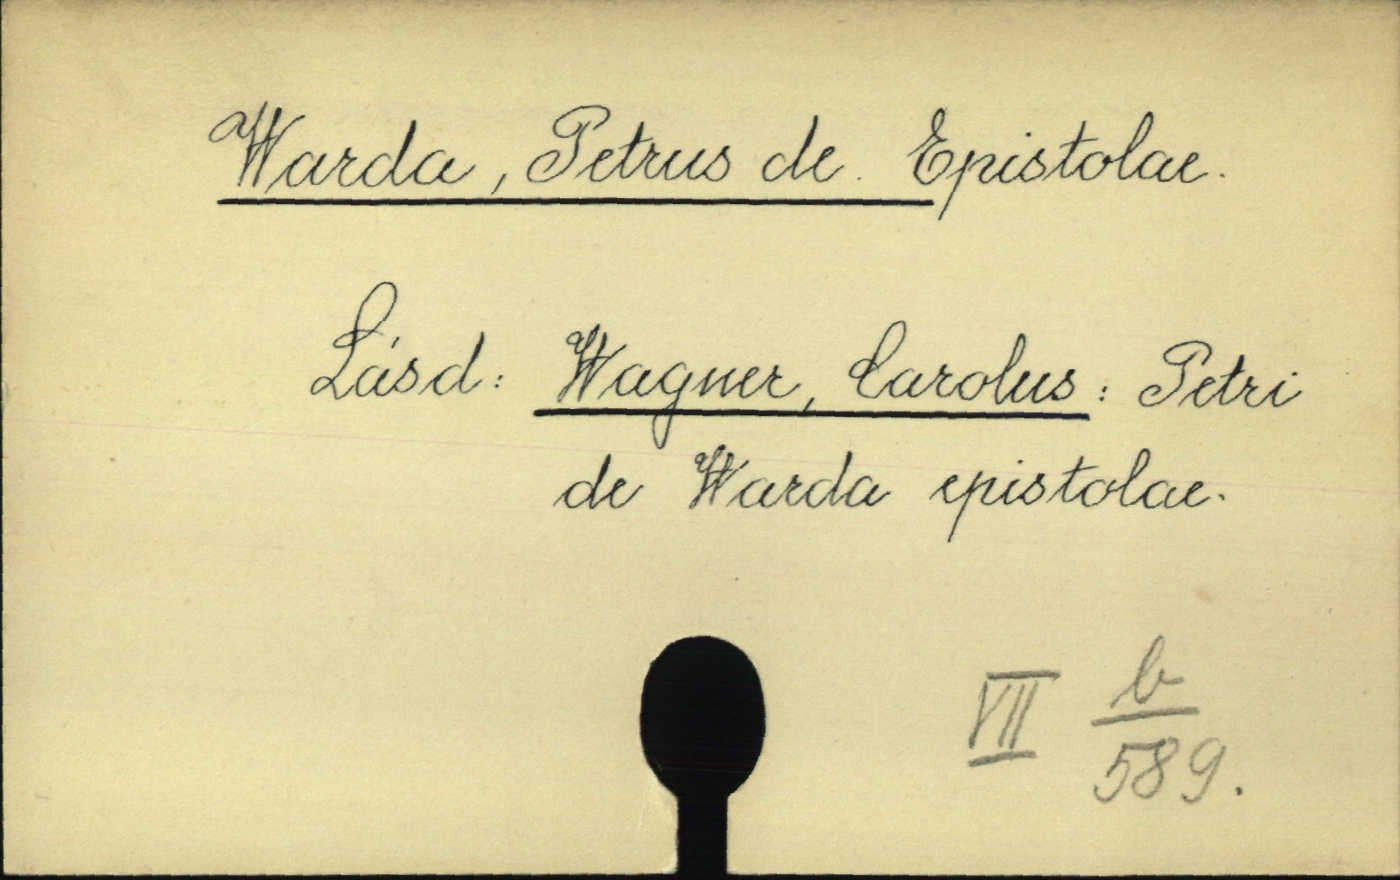 Warda, Petrus de. Epistolae.
Lásd: Wagner, Carolus: Petri
de Warda epistolae.
VII b/589.